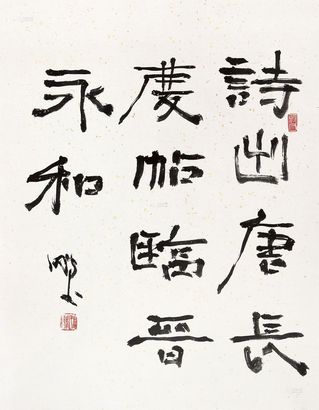 詩出唐長
慶帖臨晋
永和